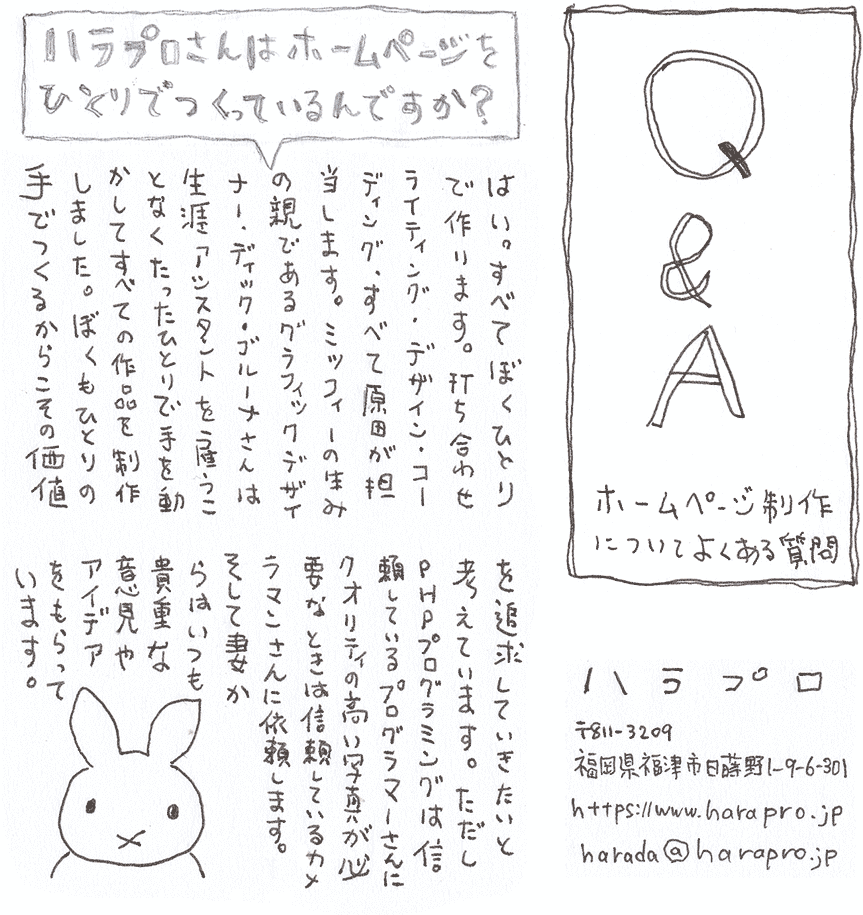 Q
&
A
ホームページ制作
についてよくある質問
ハラプロさんはホームページを
ひとりでつくっているんですか?
はい。すべてぼくひとり
で作ります。打ち合わせ
ライティング・デザイン・コー
ディング、すべて原田が担
当します。ミッフィーの生み
の親であるグラフィックデザイ
ナー・ディック・ブルーナさんは
生涯アシスタントを雇うこ
となくたったひとりで手を動
かしてすべての作品を制作
しました。ぼくもひとりの
手でつくるからこその価値
を追求していきたいと
考えています。ただし
PHPプログラミングは信
頼しているプログラマーさんに
クオリティの高い写真が必
要なときは信頼しているカメ
ラマンさんに依頼します。
そして妻か
らはいつも
貴重な
意見や
アイデア
をもらって
います。
ハラプロ
〒811-3209
福岡県福津市日蒔野1-9-6-301
https://www.harapro.jp
harada@harapro.jp